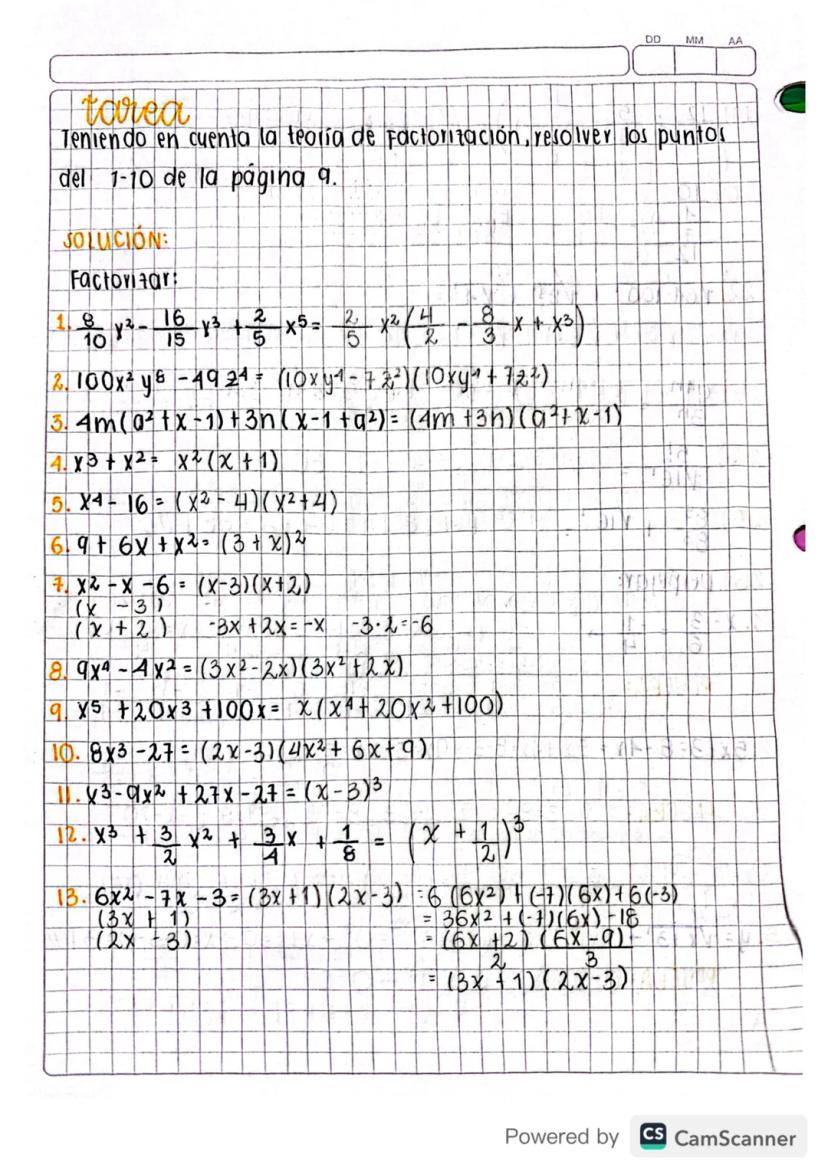 DD MM AA
tarea
Teniendo en cuenta la teoría de Factorización, resolver los puntos
del 1-10 de la página 9.
SOLUCIÓN:
Factorizar:
1. 8/10 x² - 16/15 x³ + 2/5 x⁵ = 2/5 x² (4/2 - 8/3 x + x³)
2. 100x² y⁸ - 49z⁴ = (10xy⁴ - 7z²)(10xy⁴ + 7z²)
3. 4m(a² + x - 1) + 3n(x - 1 + a²) = (4m + 3n)(a² + x - 1)
4. x³ + x² = x²(x + 1)
5. x⁴ - 16 = (x² - 4)(x² + 4)
6. 9 + 6x + x² = (3 + x)²
7. x² - x - 6 = (x-3)(x+2)
(x - 3)
(x + 2) -3x + 2x = -x -3·2 = -6
8. 9x⁴ - 4x² = (3x² - 2x)(3x² + 2x)
9. x⁵ + 20x³ + 100x = x(x⁴ + 20x² + 100)
10. 8x³ - 27 = (2x - 3)(4x² + 6x + 9)
11. x³ - 9x² + 27x - 27 = (x - 3)³
12. x³ + 3/2 x² + 3/4 x + 1/8 = (x + 1/2)³
13. 6x² - 7x - 3 = (3x + 1)(2x - 3) = 6(6x²) + (-7)(6x) + 6(-3)
(3x + 1) = 36x² + (-7)(6x) - 18
(2x - 3) = (6x + 2)/2 (6x - 9)/3
= (3x + 1)(2x - 3)
Powered by CS CamScanner